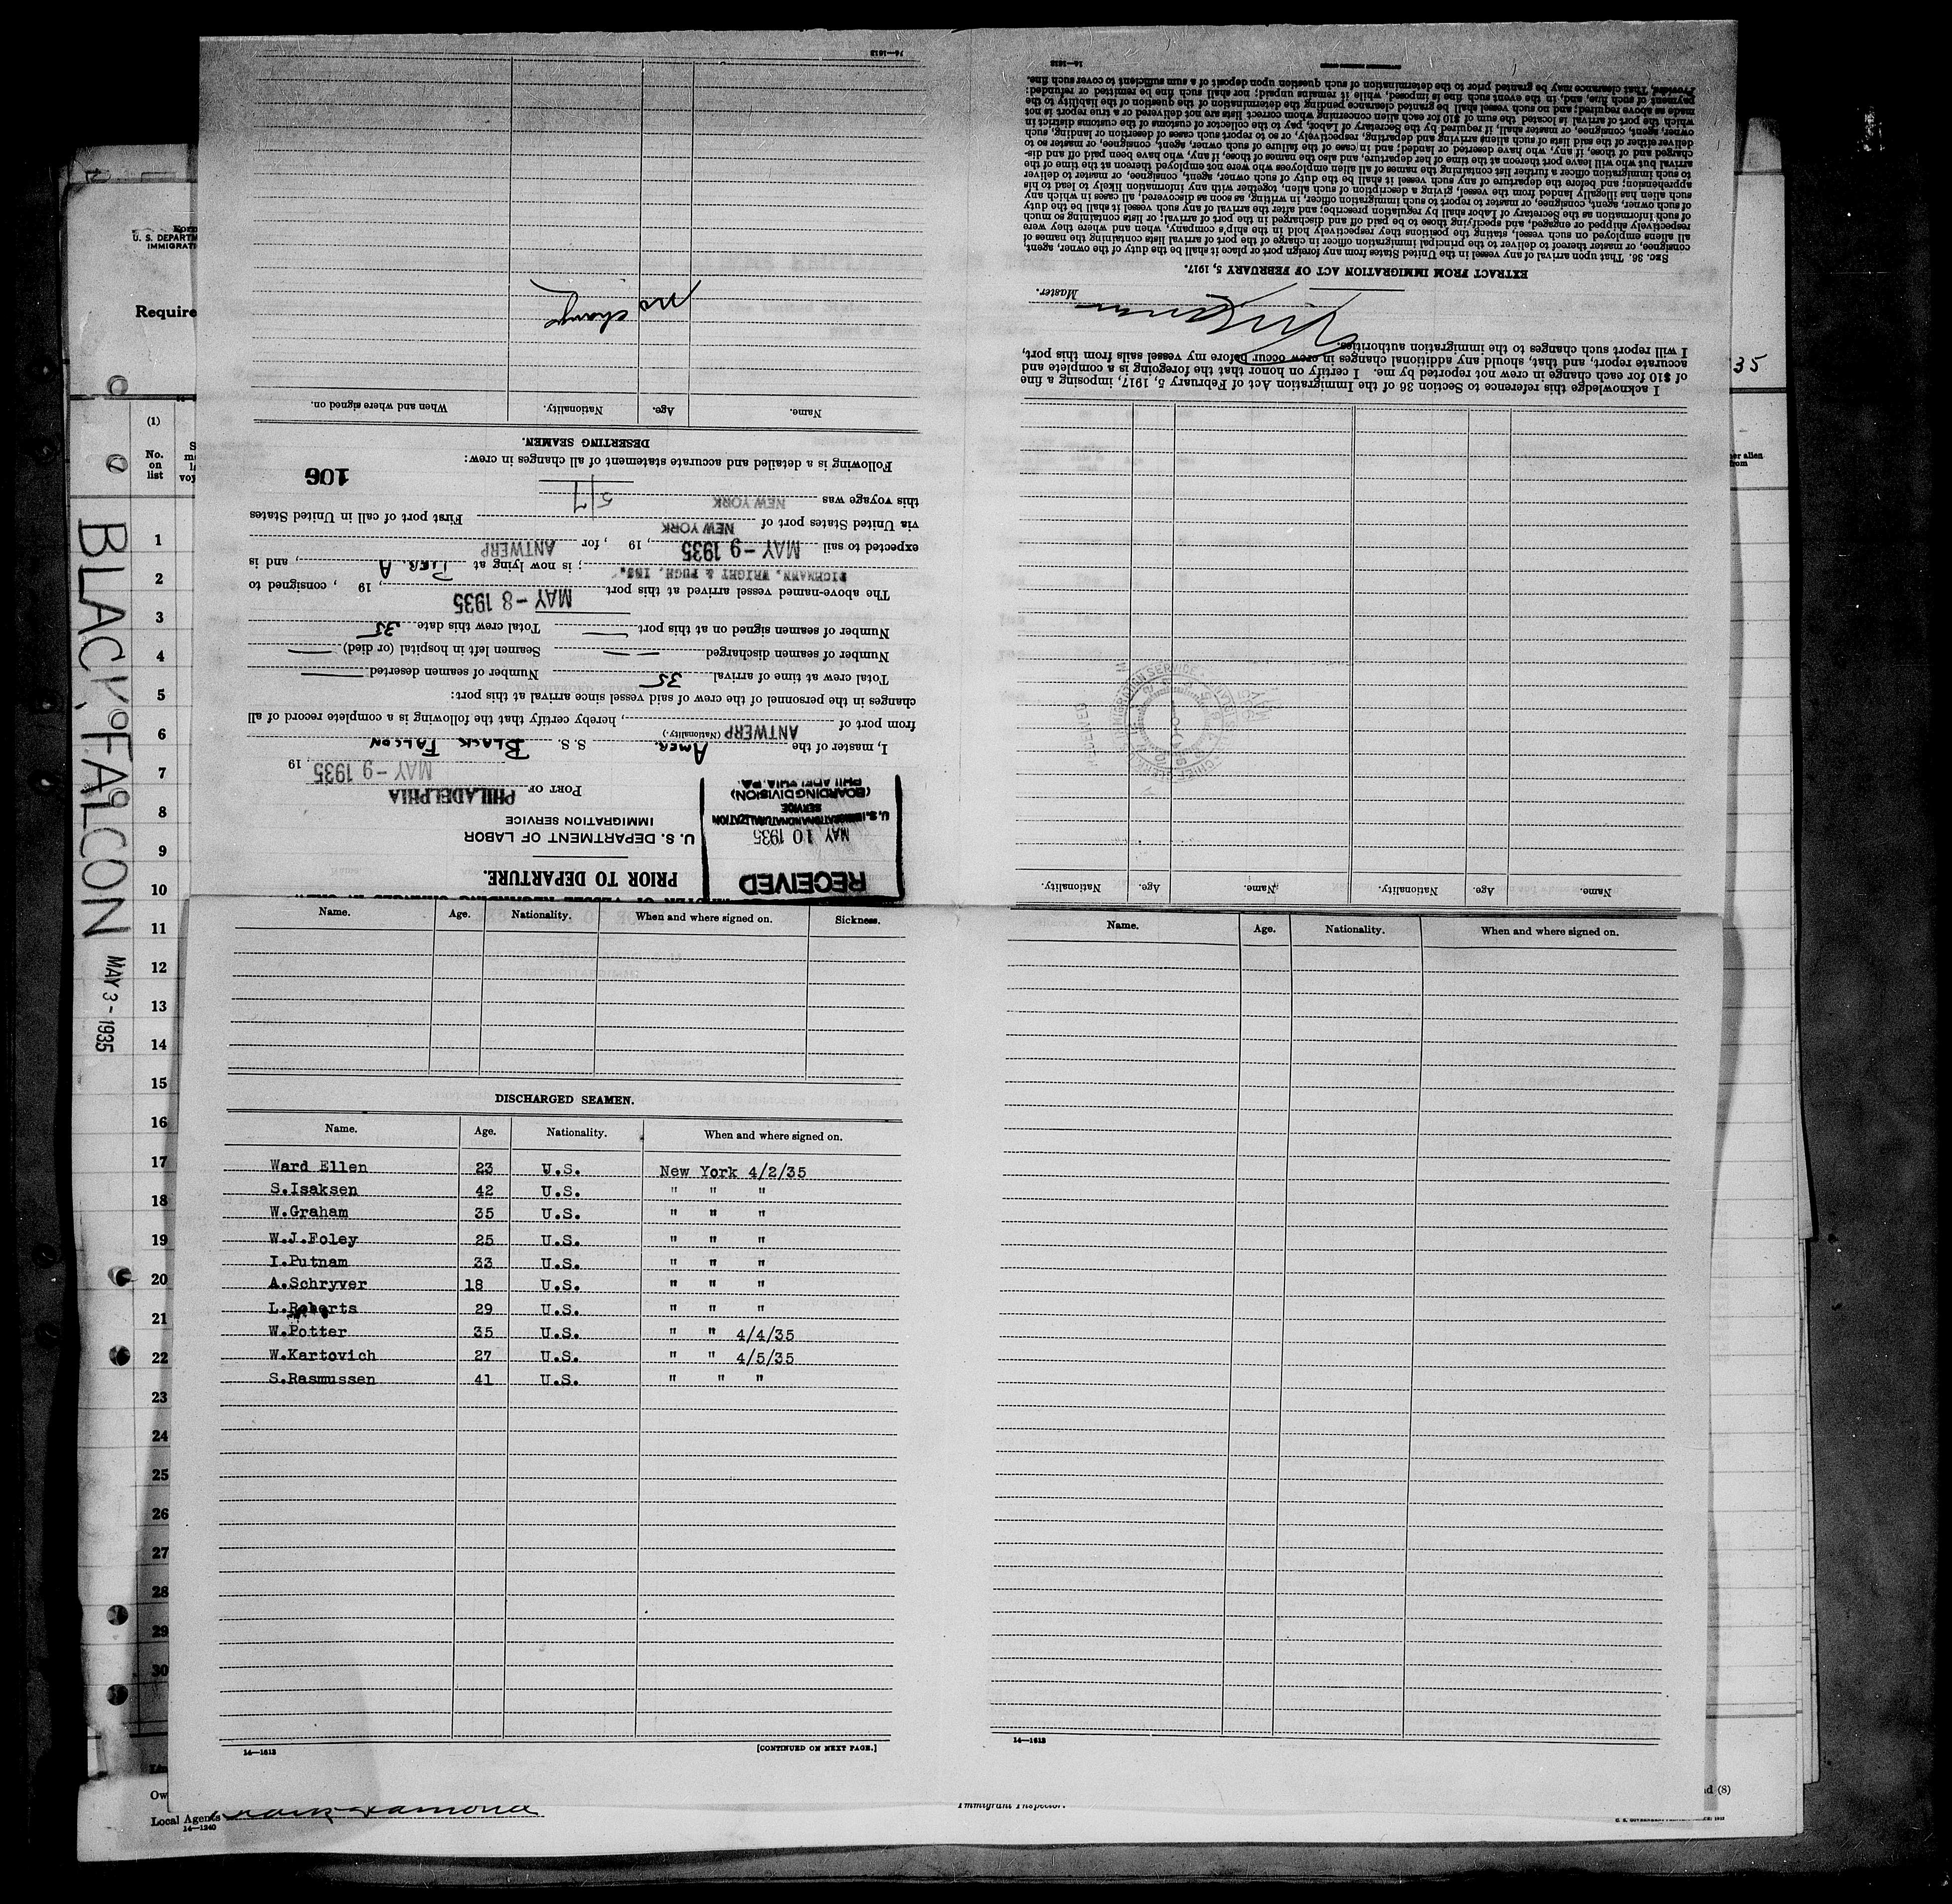 Form
U. S. DEPARTM
IMMIGRAT
Require
35
(1)
No.
on
list
er alien
from
BLACK FALCON MAY 3 - 1935
1
2
3
4
5
6
7
8
9
10
11
12
13
14
15
16
17
18
19
20
21
22
23
24
25
26
27
28
29
30
PRIOR TO DEPARTURE.
RECEIVED
MAY 10 1935
U. S. IMMIGRATION AND NATURALIZATION
SERVICE
(BOARDING DIVISION)
PHILADELPHIA, PA.
U. S. DEPARTMENT OF LABOR
IMMIGRATION SERVICE
PORT OF PHILADELPHIA
MAY - 9 1935, 19
I, master of the AMER. (Nationality.) S. S. BLACK FALCON
from port of ANTWERP, hereby certify that the following is a complete record of all
changes in the personnel of the crew of said vessel since arrival at this port:
Total crew at time of arrival 35 Number of seamen deserted
Number of seamen discharged Seamen left in hospital (or died)
Number of seamen signed on at this port Total crew this date 35
The above-named vessel arrived at this port MAY - 8 1935, 19 , consigned to
DICHMANN, WRIGHT & PUGH, INC.; is now lying at PIER. A, and is
expected to sail MAY - 9 1935, 19 , for ANTWERP
via United States port of NEW YORK First port of call in United States
this voyage was NEW YORK 5/7
106
Following is a detailed and accurate statement of all changes in crew:
DESERTING SEAMEN.
Name. Age. Nationality. When and where signed on.
No change
14—1613
Name. Age. Nationality. Name. Age. Nationality.
I acknowledge this reference to Section 36 of the Immigration Act of February 5, 1917, imposing a fine
of $10 for each change in crew not reported by me. I certify on honor that the foregoing is a complete and
accurate report, and that, should any additional changes in crew occur before my vessel sails from this port,
I will report such changes to the immigration authorities.
Master.
EXTRACT FROM IMMIGRATION ACT OF FEBRUARY 5, 1917.
SEC. 36. That upon arrival of any vessel in the United States from any foreign port or place it shall be the duty of the owner, agent,
consignee, or master thereof to deliver to the principal immigration officer in charge of the port of arrival lists containing the names of
all aliens employed on such vessel, stating the positions they respectively hold in the ship's company, when and where they were
respectively shipped or engaged, and specifying those to be paid off and discharged in the port of arrival; or lists containing so much
of such information as the Secretary of Labor shall by regulation prescribe; and after the arrival of any such vessel it shall be the duty
of such owner, agent, consignee, or master to report to such immigration officer, in writing, as soon as discovered, all cases in which any
such alien has illegally landed from the vessel, giving a description of such alien, together with any information likely to lead to his
apprehension; and before the departure of any such vessel it shall be the duty of such owner, agent, consignee, or master to deliver
to such immigration officer a further list containing the names of all alien employees who were not employed thereon at the time of the
arrival but who will leave port thereon at the time of her departure, and also the names of those, if any, who have been paid off and dis-
charged and of those, if any, who have deserted or landed; and in case of the failure of such owner, agent, consignee, or master so to
deliver either of the said lists of such aliens arriving and departing, respectively, or so to report such cases of desertion or landing, such
owner, agent, consignee, or master shall, if required by the Secretary of Labor, pay to the collector of customs of the customs district in
which the port of arrival is located the sum of $10 for each alien concerning whom correct lists are not delivered or a true report is not
made as above required; and no such vessel shall be granted clearance pending the determination of the question of the liability to the
payment of such fine, and, in the event such fine is imposed, while it remains unpaid; nor shall such fine be remitted or refunded:
Provided, That clearance may be granted prior to the determination of such question upon deposit of a sum sufficient to cover such fine.
14—1613
Name. Age. Nationality. When and where signed on. Sickness.
DISCHARGED SEAMEN.
Name. Age. Nationality. When and where signed on.
Ward Ellen 23 U.S. New York 4/2/35
S.Isaksen 42 U.S. " " "
W.Graham 35 U.S. " " "
W.J.Foley 25 U.S. " " "
I.Putnam 33 U.S. " " "
A.Schryver 18 U.S. " " "
L.Roberts 29 U.S. " " "
W.Potter 35 U.S. " " 4/4/35
W.Kartovich 27 U.S. " " 4/5/35
S.Rasmussen 41 U.S. " " "
14—1613 [CONTINUED ON NEXT PAGE.]
Name. Age. Nationality. When and where signed on.
14—1613
Ow
Local Agents
14—1240
Immigrant Inspector.
nd (8)